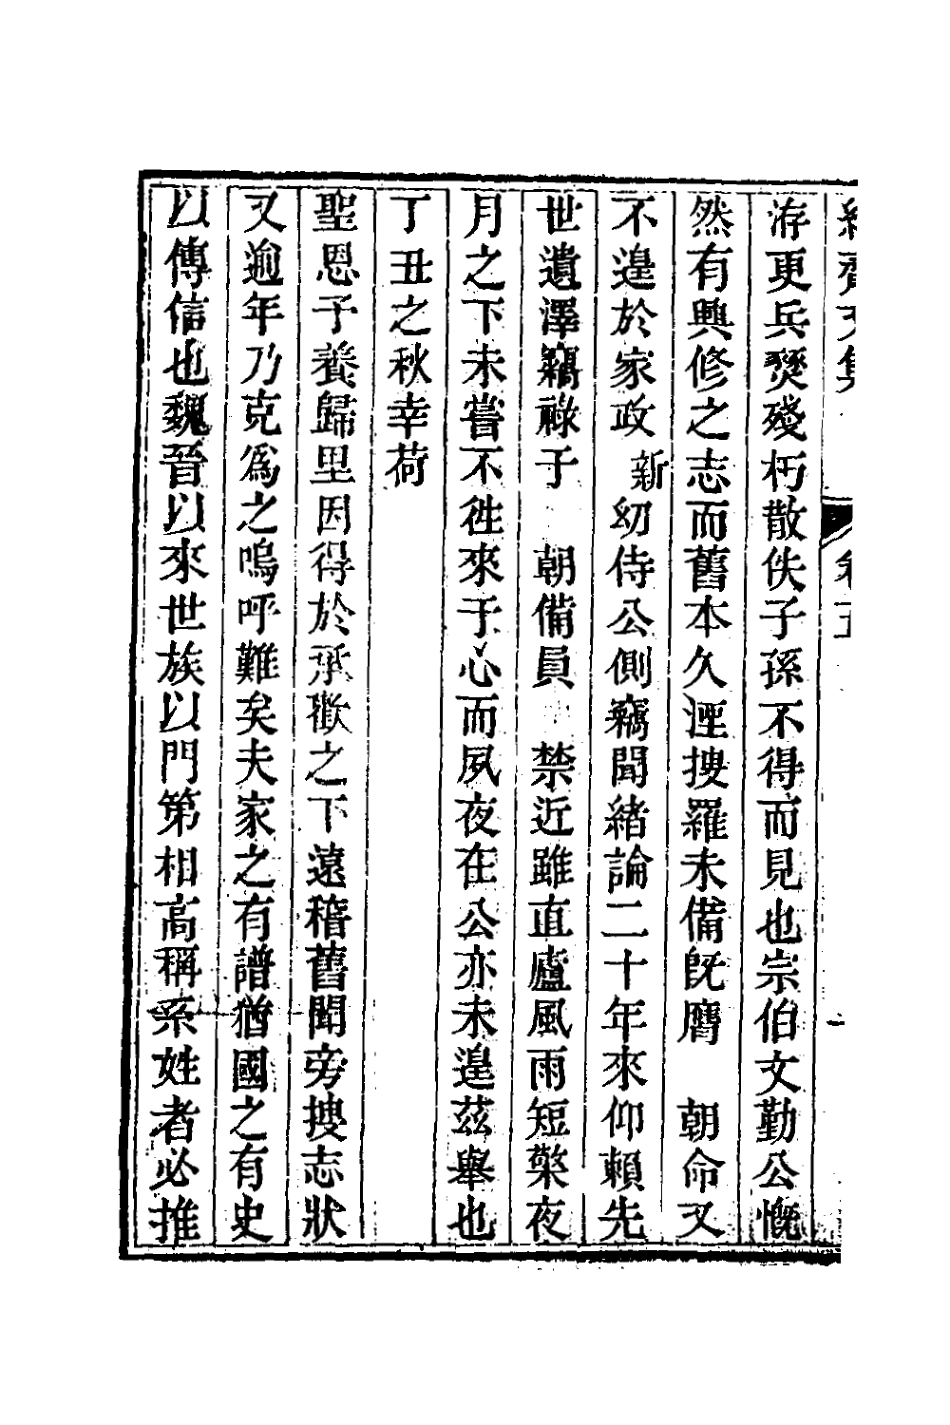 洊更兵燹殘朽散佚子孫不得而見也宗伯文勤公慨
然有興修之志而舊本久湮搜羅未備旣膺　朝命又
不遑於家政　新幼侍公側竊聞緒論二十年來仰賴先
世遺澤竊祿于　朝備員　禁近雖直廬風雨短檠夜
月之下未嘗不徃來于心而夙夜在公亦未遑茲舉也
丁丑之秋幸荷
聖恩予養歸里因得於承歡之下遠稽舊聞旁搜志狀
又逾年乃克爲之嗚呼難矣夫家之有譜猶國之有史
以傳信也魏晉以來世族以門第相高稱系姓者必推